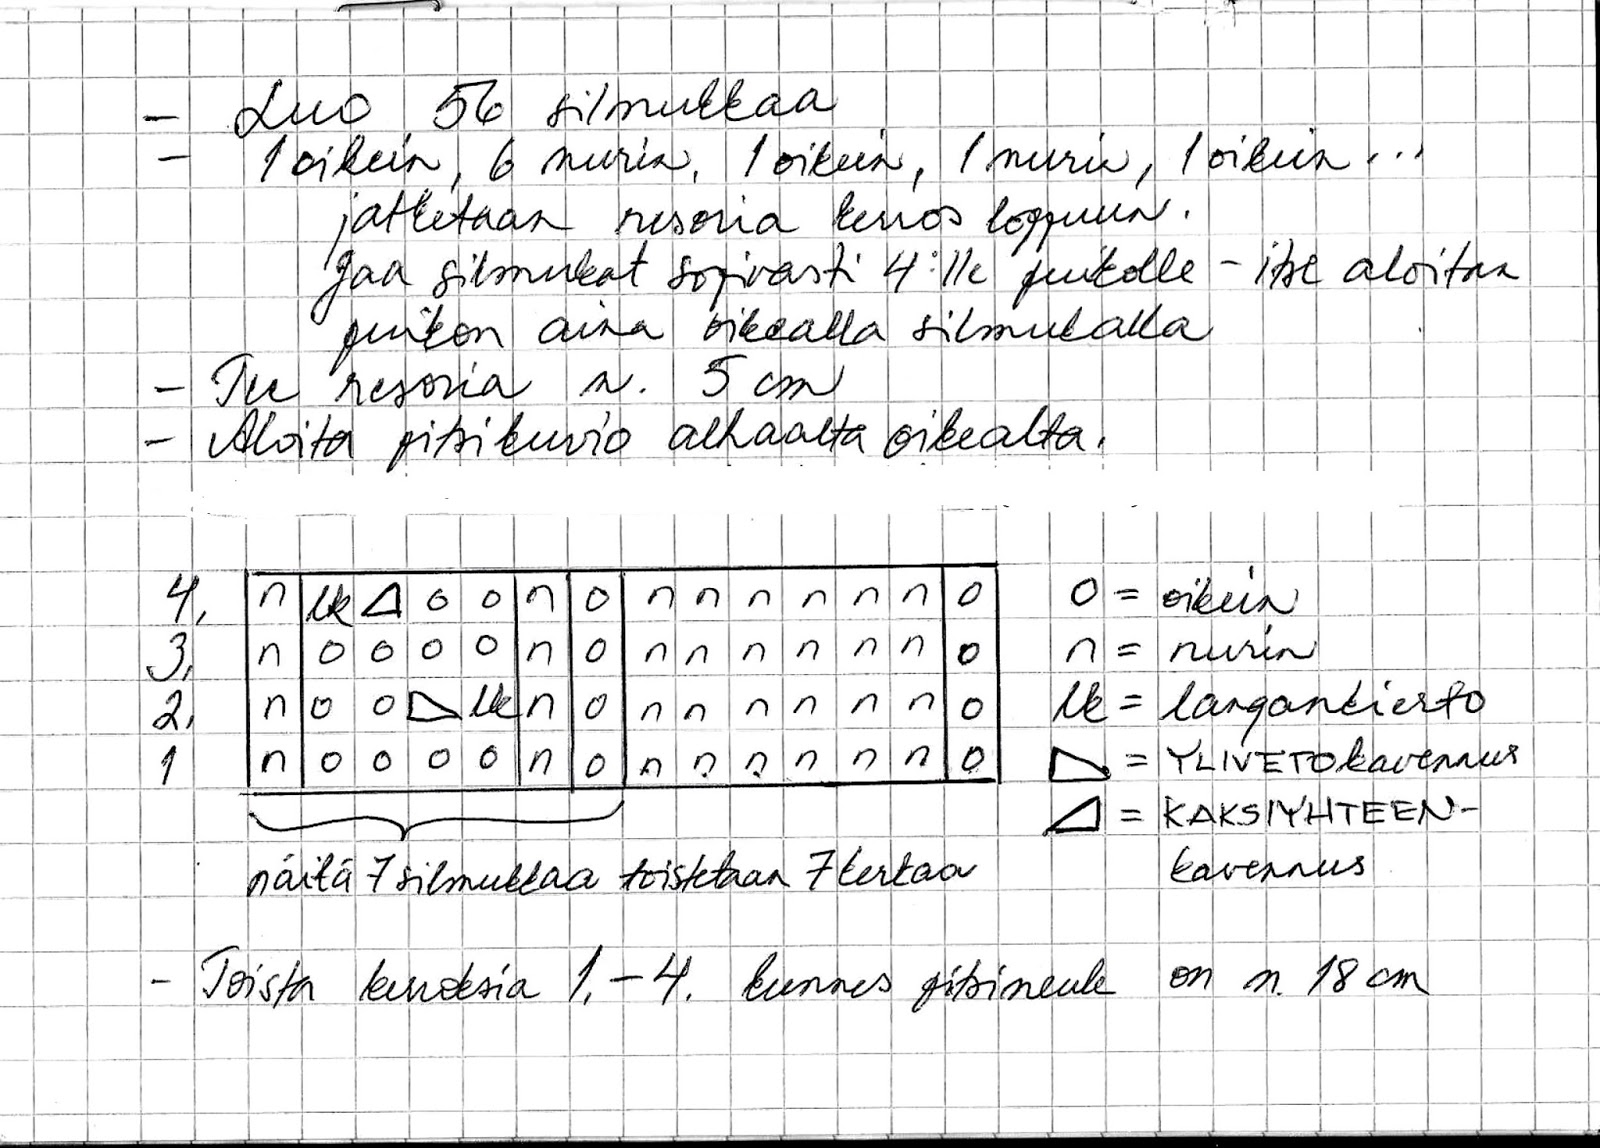 - Luo 56 silmukkaa
- 1 oikein, 6 nurin, 1 oikein, 1 nurin, 1 oikein...
jatketaan resoria kerros loppuun.
Jaa silmukat sopivasti 4:lle puikolle - itse aloitan
puikon aina oikealla silmukalla
- Tee resoria n. 5 cm
- Aloita pitsikuvio alhaalta oikealta.
4. n lk o o n o n n n n n n o o = oikein
3. n o o o o n o n n n n n n o n = nurin
2. n o o lk n o n n n n n n o lk = langankierto
1 n o o o o n o n n n n n n o = YLIVETOkavennus
= KAKSIYHTEEN-
näitä 7 silmukkaa toistetaan 7 kertaa kavennus
- Toista kerroksia 1.-4. kunnes pitsineule on n. 18 cm